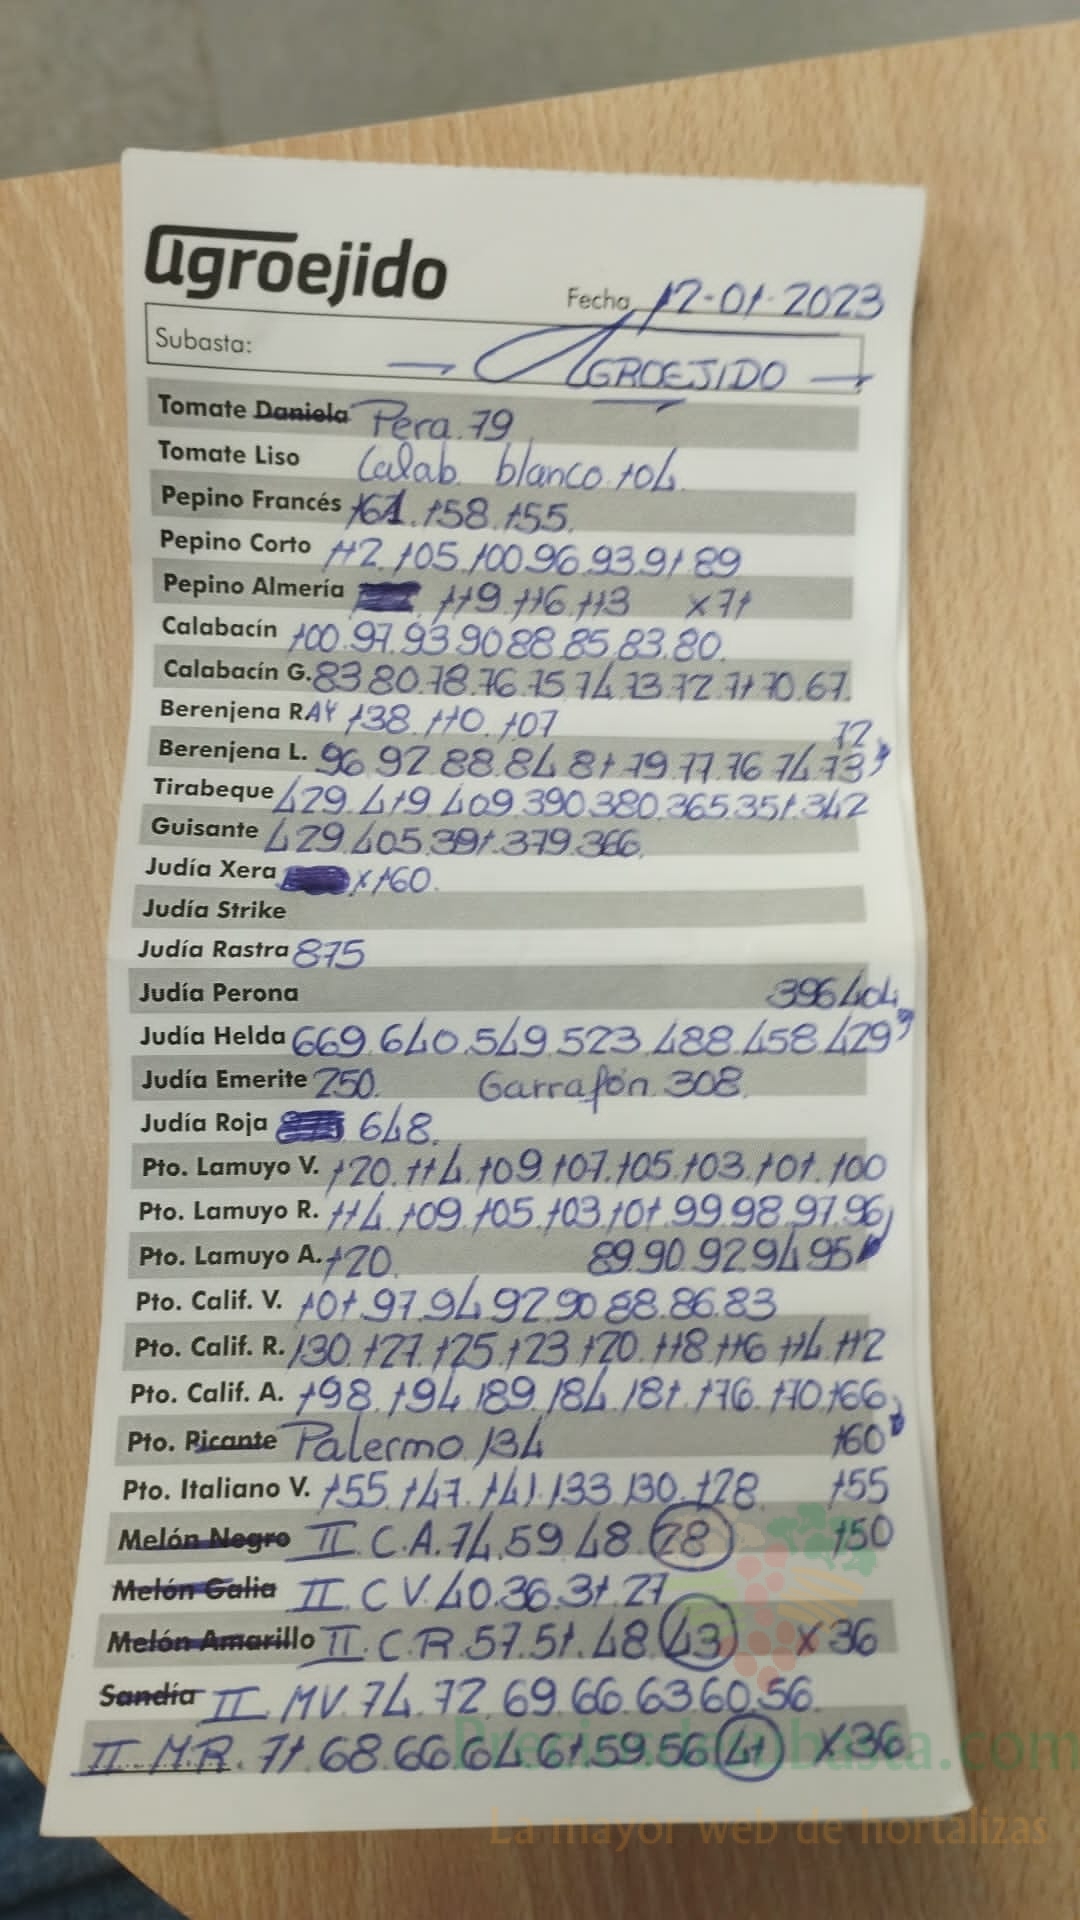 agroejido
Fecha 12-01-2023
Subasta: AGROEJIDO
Tomate Daniela Pera. 79
Tomate Liso Calab. blanco. 104.
Pepino Francés 161. 158. 155.
Pepino Corto 112. 105. 100. 96. 93. 91 89
Pepino Almería 119. 116. 113 x 71
Calabacín 100. 97. 93. 90 88. 85. 83. 80.
Calabacín G. 83. 80. 78. 76. 75 74. 73. 72. 71 70. 67.
Berenjena RAY 138. 110. 107
72
Berenjena L. 96. 92. 88. 84. 81. 79. 77. 76 74. 73
Tirabeque 429. 419. 409. 390. 380. 365. 351. 342
Guisante 429. 405. 391. 379. 366.
Judía Xera x 160.
Judía Strike
Judía Rastra 875
Judía Perona 396 404
Judía Helda 669. 640. 549. 523. 488. 458. 429
Judía Emerite 250. Garrafón. 308.
Judía Roja 648.
Pto. Lamuyo V. 120. 114. 109. 107. 105. 103. 101. 100
Pto. Lamuyo R. 114. 109. 105. 103. 101. 99. 98. 97. 96
Pto. Lamuyo A. 120. 89. 90. 92. 94. 95
Pto. Calif. V. 101. 97. 94. 92. 90 88. 86. 83
Pto. Calif. R. 130. 127. 125. 123 120. 118. 116 114. 112
Pto. Calif. A. 198. 194. 189. 184. 181. 176. 170. 166
Pto. Picante Palermo. 134 160
Pto. Italiano V. 155. 147. 141. 133 130. 128. 155
Melón Negro II. C. A. 74. 59. 48. 28 150
Melón Galia II. C V. 40. 36. 31. 27
Melón Amarillo II. C. R. 57. 51. 48. 43 x 36
Sandía II. MV. 74. 72. 69. 66. 63 60. 56.
II. M.R. 71. 68. 66. 64. 61. 59. 56 41 x 36
Preciosdesubasta.com
La mayor web de hortalizas